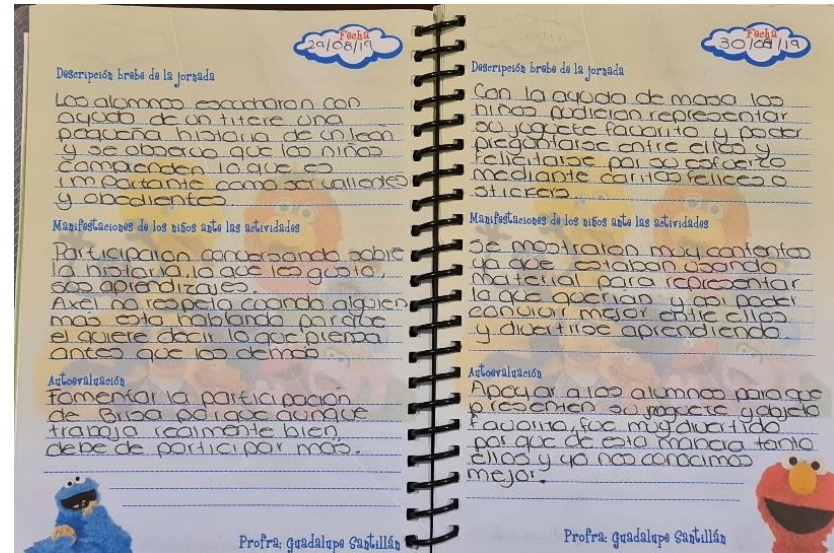 Fecha
29/08/19
Descripción brebe de la jornada
Los alumnos escucharon con
ayuda de un titere una
pequeña historia de un león
y se observo que los niños
comprenden lo que es
importante como ser valientes
y obedientes
Manifestaciones de los niños ante las actividades
Participaron conversando sobre
la historia, lo que les gusto,
sus aprendizajes.
Axel no respeta cuando alguien
más esta hablando porque
el quiere decir lo que piensa
antes que los demás
Autoevaluación
Fomentar la participación
de Brisa porque aunque
trabaja realmente bien
debe de participar más.
Profra: Guadalupe Santillán
Fecha
30/08/19
Descripción brebe de la jornada
Con la ayuda de masa los
niños pudieron representar
su juguete favorito y poder
preguntarse entre ellos y
felicitarse por su esfuerzo
mediante caritas felices o
stickers
Manifestaciones de los niños ante las actividades
Se mostraron muy contentos
ya que estaban usando
material para representar
lo que querian y asi poder
convivir mejor entre ellos
y divertirse aprendiendo
Autoevaluación
Apoyar a los alumnos para que
presenten su juguete y objeto
favorito, fue muy divertido
por que de esta manera tanto
ellos y yo nos conocimos
mejor.
Profra: Guadalupe Santillán